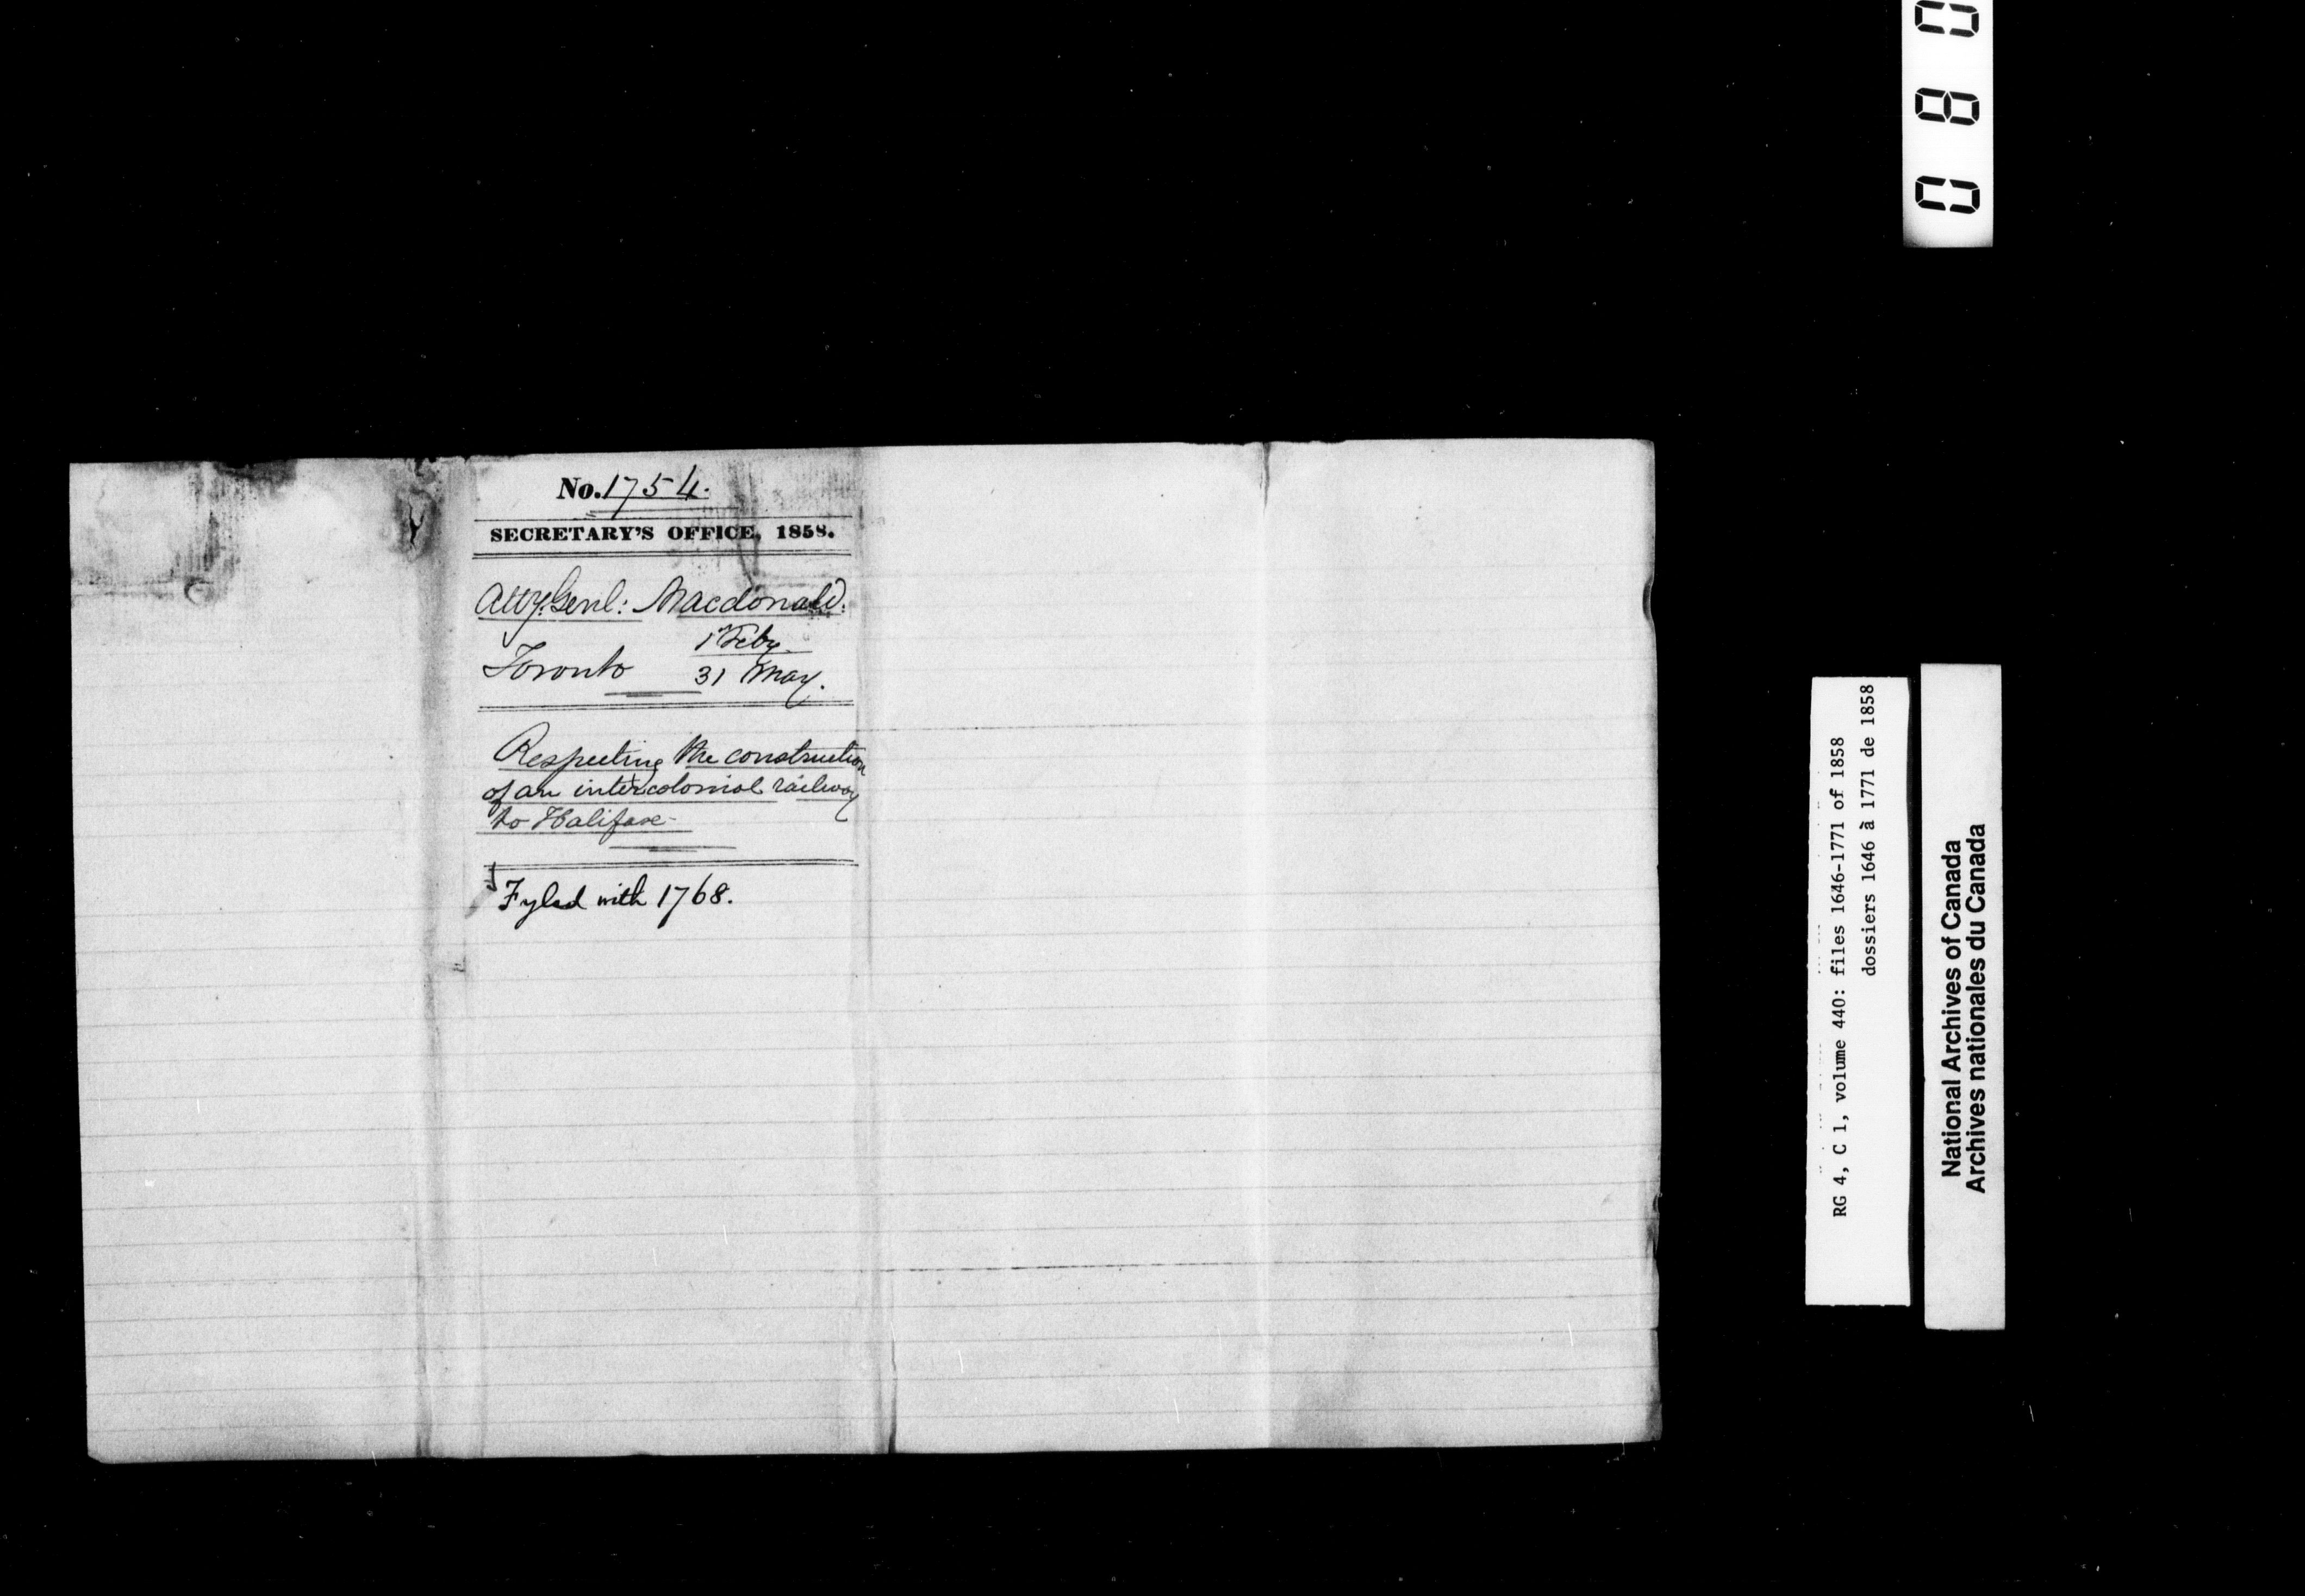 No. 1754.
SECRETARY'S OFFICE, 1858.
Atty. Genl: Macdonald.
1 Feby
Toronto 31 May.
Respecting the construction
of an intercolonial railway
to Halifax
Fyled with 1768.
080
RG 4, C 1, volume 440: files 1646-1771 of 1858
dossiers 1646 à 1771 de 1858
National Archives of Canada
Archives nationales du Canada